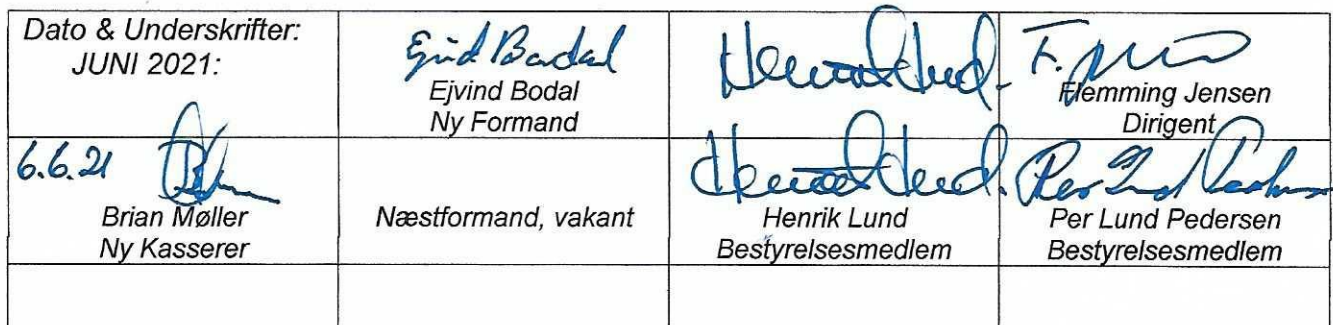 Dato & Underskrifter:
JUNI 2021:
Ejvind Bodal
Ejvind Bodal
Ny Formand
Henrik Lund.
F.
Flemming Jensen
Dirigent
6.6.21
Brian Møller
Ny Kasserer
Næstformand, vakant
Henrik Lund.
Henrik Lund
Bestyrelsesmedlem
Per Lund Pedersen
Per Lund Pedersen
Bestyrelsesmedlem